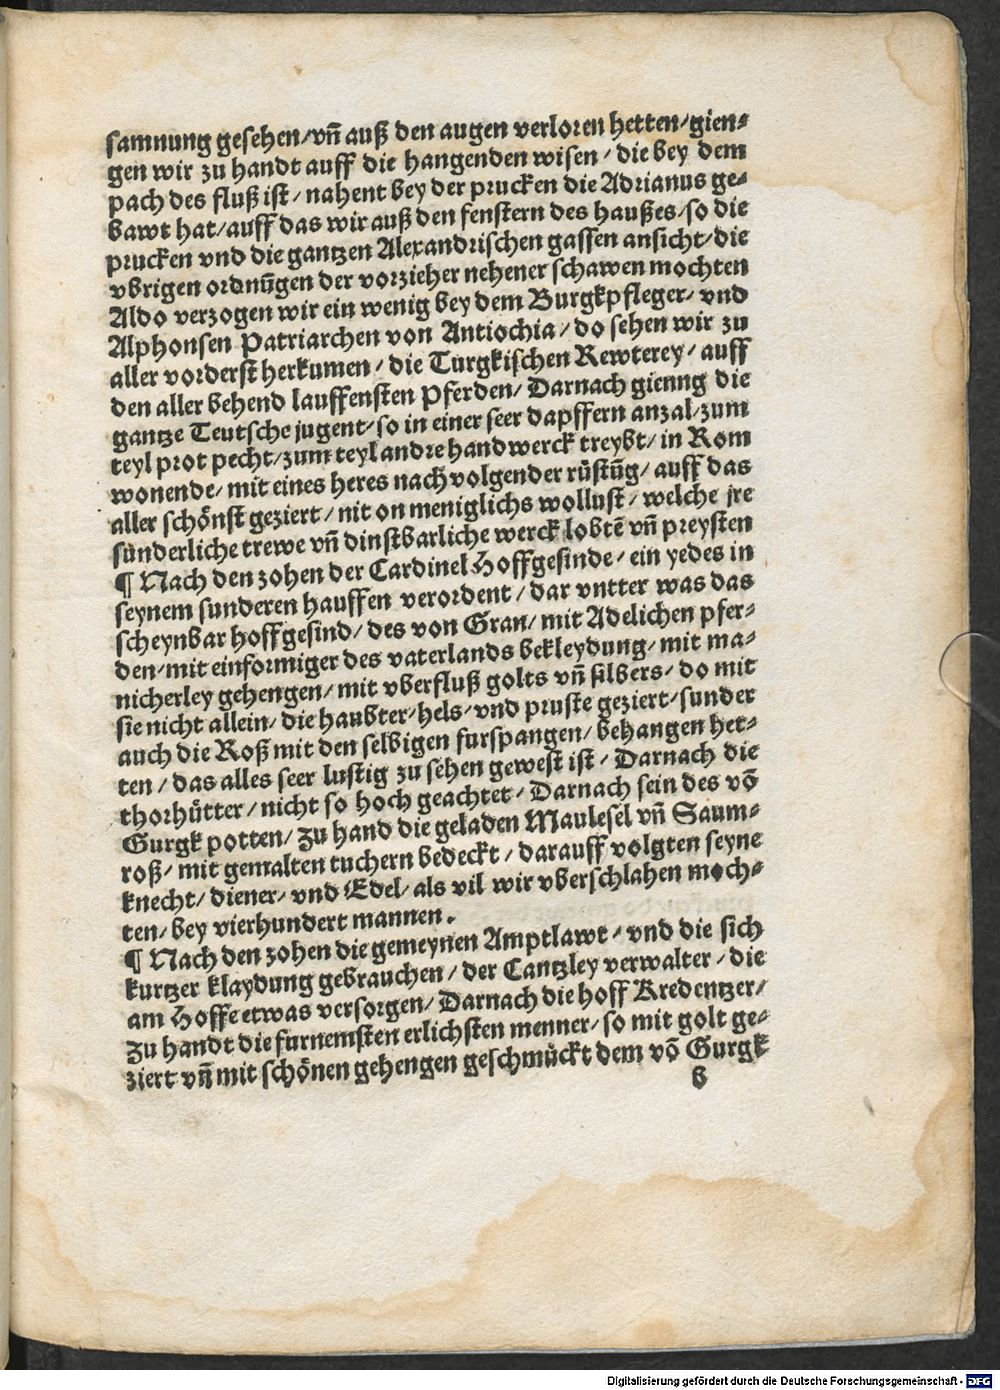 samnung gesehen/vñ auß den augen verloren hetten/gien⸗
gen wir zu handt auff die hangenden wisen/die bey dem
pach des fluß ist/nahent bey der prucken die Adrianus ge⸗
bawt hat/auff das wir auß den fenstern des haußes/so die
prucken vnd die gantzen Alexandrischen gassen ansicht/die
vbrigen ordnũgen der vorzieher nehener schawen mochten
Aldo verzogen wir ein wenig bey dem Burgkpfleger/vnd
Alphonsen Patriarchen von Antiochia/do sehen wir zu
aller vorderst herkumen/die Turgkischen Rewterey/auff
den aller behend lauffensten Pferden/Darnach gienng die
gantze Teutsche jugent/so in einer seer dapffern anzal/zum
teyl prot pecht/zum teyl andre handwerck treybt/in Rom
wonende/mit eines heres nachvolgender rüstũg/auff das
aller schönst geziert/nit on meniglichs wollust/welche jre
sunderliche trewe vñ dinstbarliche werck lobtẽ vñ preysten
¶ Nach den zohen der Cardinel Hoffgesinde/ein yedes in
seynem sunderen hauffen verordent/dar vntter was das
scheynbar hoffgesind/des von Gran/mit Adelichen pfer⸗
den/mit einformiger des vaterlands bekleydung/mit ma⸗
nicherley gehengen/mit vberfluß golts vñ silbers/do mit
sie nicht allein/die haubter/hels/vnd pruste geziert/sunder
auch die Roß mit den selbigen furspangen/behangen het⸗
ten/das alles seer lustig zu sehen gewest ist/Darnach die
thorhütter/nicht so hoch geachtet/Darnach sein des võ
Gurgk potten/zu hand die geladen Maulesel vñ Saum⸗
roß/mit gemalten tuchern bedeckt/darauff volgten seyne
knecht/diener/vnd Edel/als vil wir vberschlahen moch⸗
ten/bey vierhundert mannen.
¶ Nach den zohen die gemeynen Amptlawt/vnd die sich
kurtzer klaydung gebrauchen/der Cantzley verwalter/die
am Hoffe etwas versorgen/Darnach die hoff Kredentzer/
zu handt die furnemsten erlichsten menner/so mit golt ge⸗
ziert vñ mit schönen gehengen geschmückt dem võ Gurgk
b
Digitalisierung gefördert durch die Deutsche Forschungsgemeinschaft - DFG